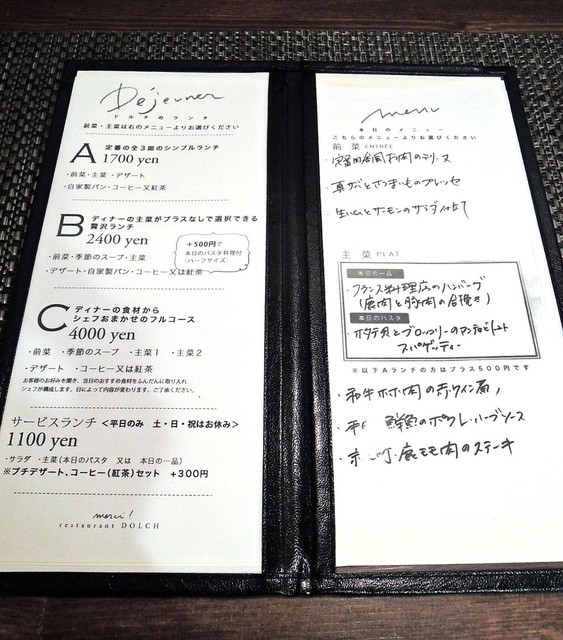 Déjeuner
ドルチのランチ
前菜・主菜は右のメニューよりお選びください
A 定番の全3皿のシンプルランチ
1700 yen
・前菜・主菜 ・デザート
・自家製パン・コーヒー又紅茶
B ディナーの主菜がプラスなしで選択できる
贅沢ランチ
2400 yen
+500円で
本日のパスタ料理付
(ハーフサイズ)
・前菜・季節のスープ・主菜
・デザート・自家製パン・コーヒー又は紅茶
C ディナーの食材から
シェフおまかせのフルコース
4000 yen
・前菜 ・季節のスープ ・主菜1 ・主菜2
・デザート ・コーヒー又は紅茶
お客様のお好みを聞き、当日のおすすめ食材をふんだんに取り入れ
シェフが構成します。日によって内容が変わります。ご了承ください。
サービスランチ <平日のみ 土・日・祝はお休み>
1100 yen
・サラダ ・主菜(本日のパスタ 又は 本日の一品)
※プチデザート、コーヒー(紅茶)セット +300円
merci!
restaurant DOLCH
menu
本日のメニュー
こちらのメニューよりお選びください
前 菜 ENTRÉE
お肉のテリーヌ
・真ダコとホのプレッセ
・生ハムとサーモンのサラダ仕立て
主 菜 PLAT
本日の一品
・フランス料理店のハンバーグ
(鹿肉と豚肉の合挽き)
本日のパスタ
・ホタテ貝とブロッコリーのアンチョビトマト
スパゲッティー
※以下Aランチの方はプラス500円です
・和牛ホホ肉の赤ワイン煮
鮮魚のポワレ ハーブソース
鹿モモ肉のステーキ